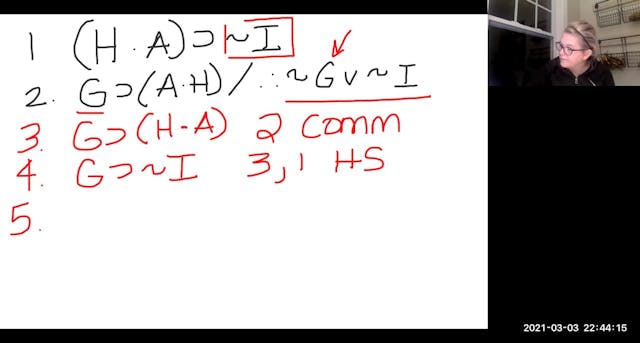 1 (H · A) ⊃ ~I
2. G ⊃ (A·H) / ∴ ~G v ~I
3. G ⊃ (H·A) 2 Comm
4. G ⊃ ~I 3,1 HS
5.
2021-03-03 22:44:15